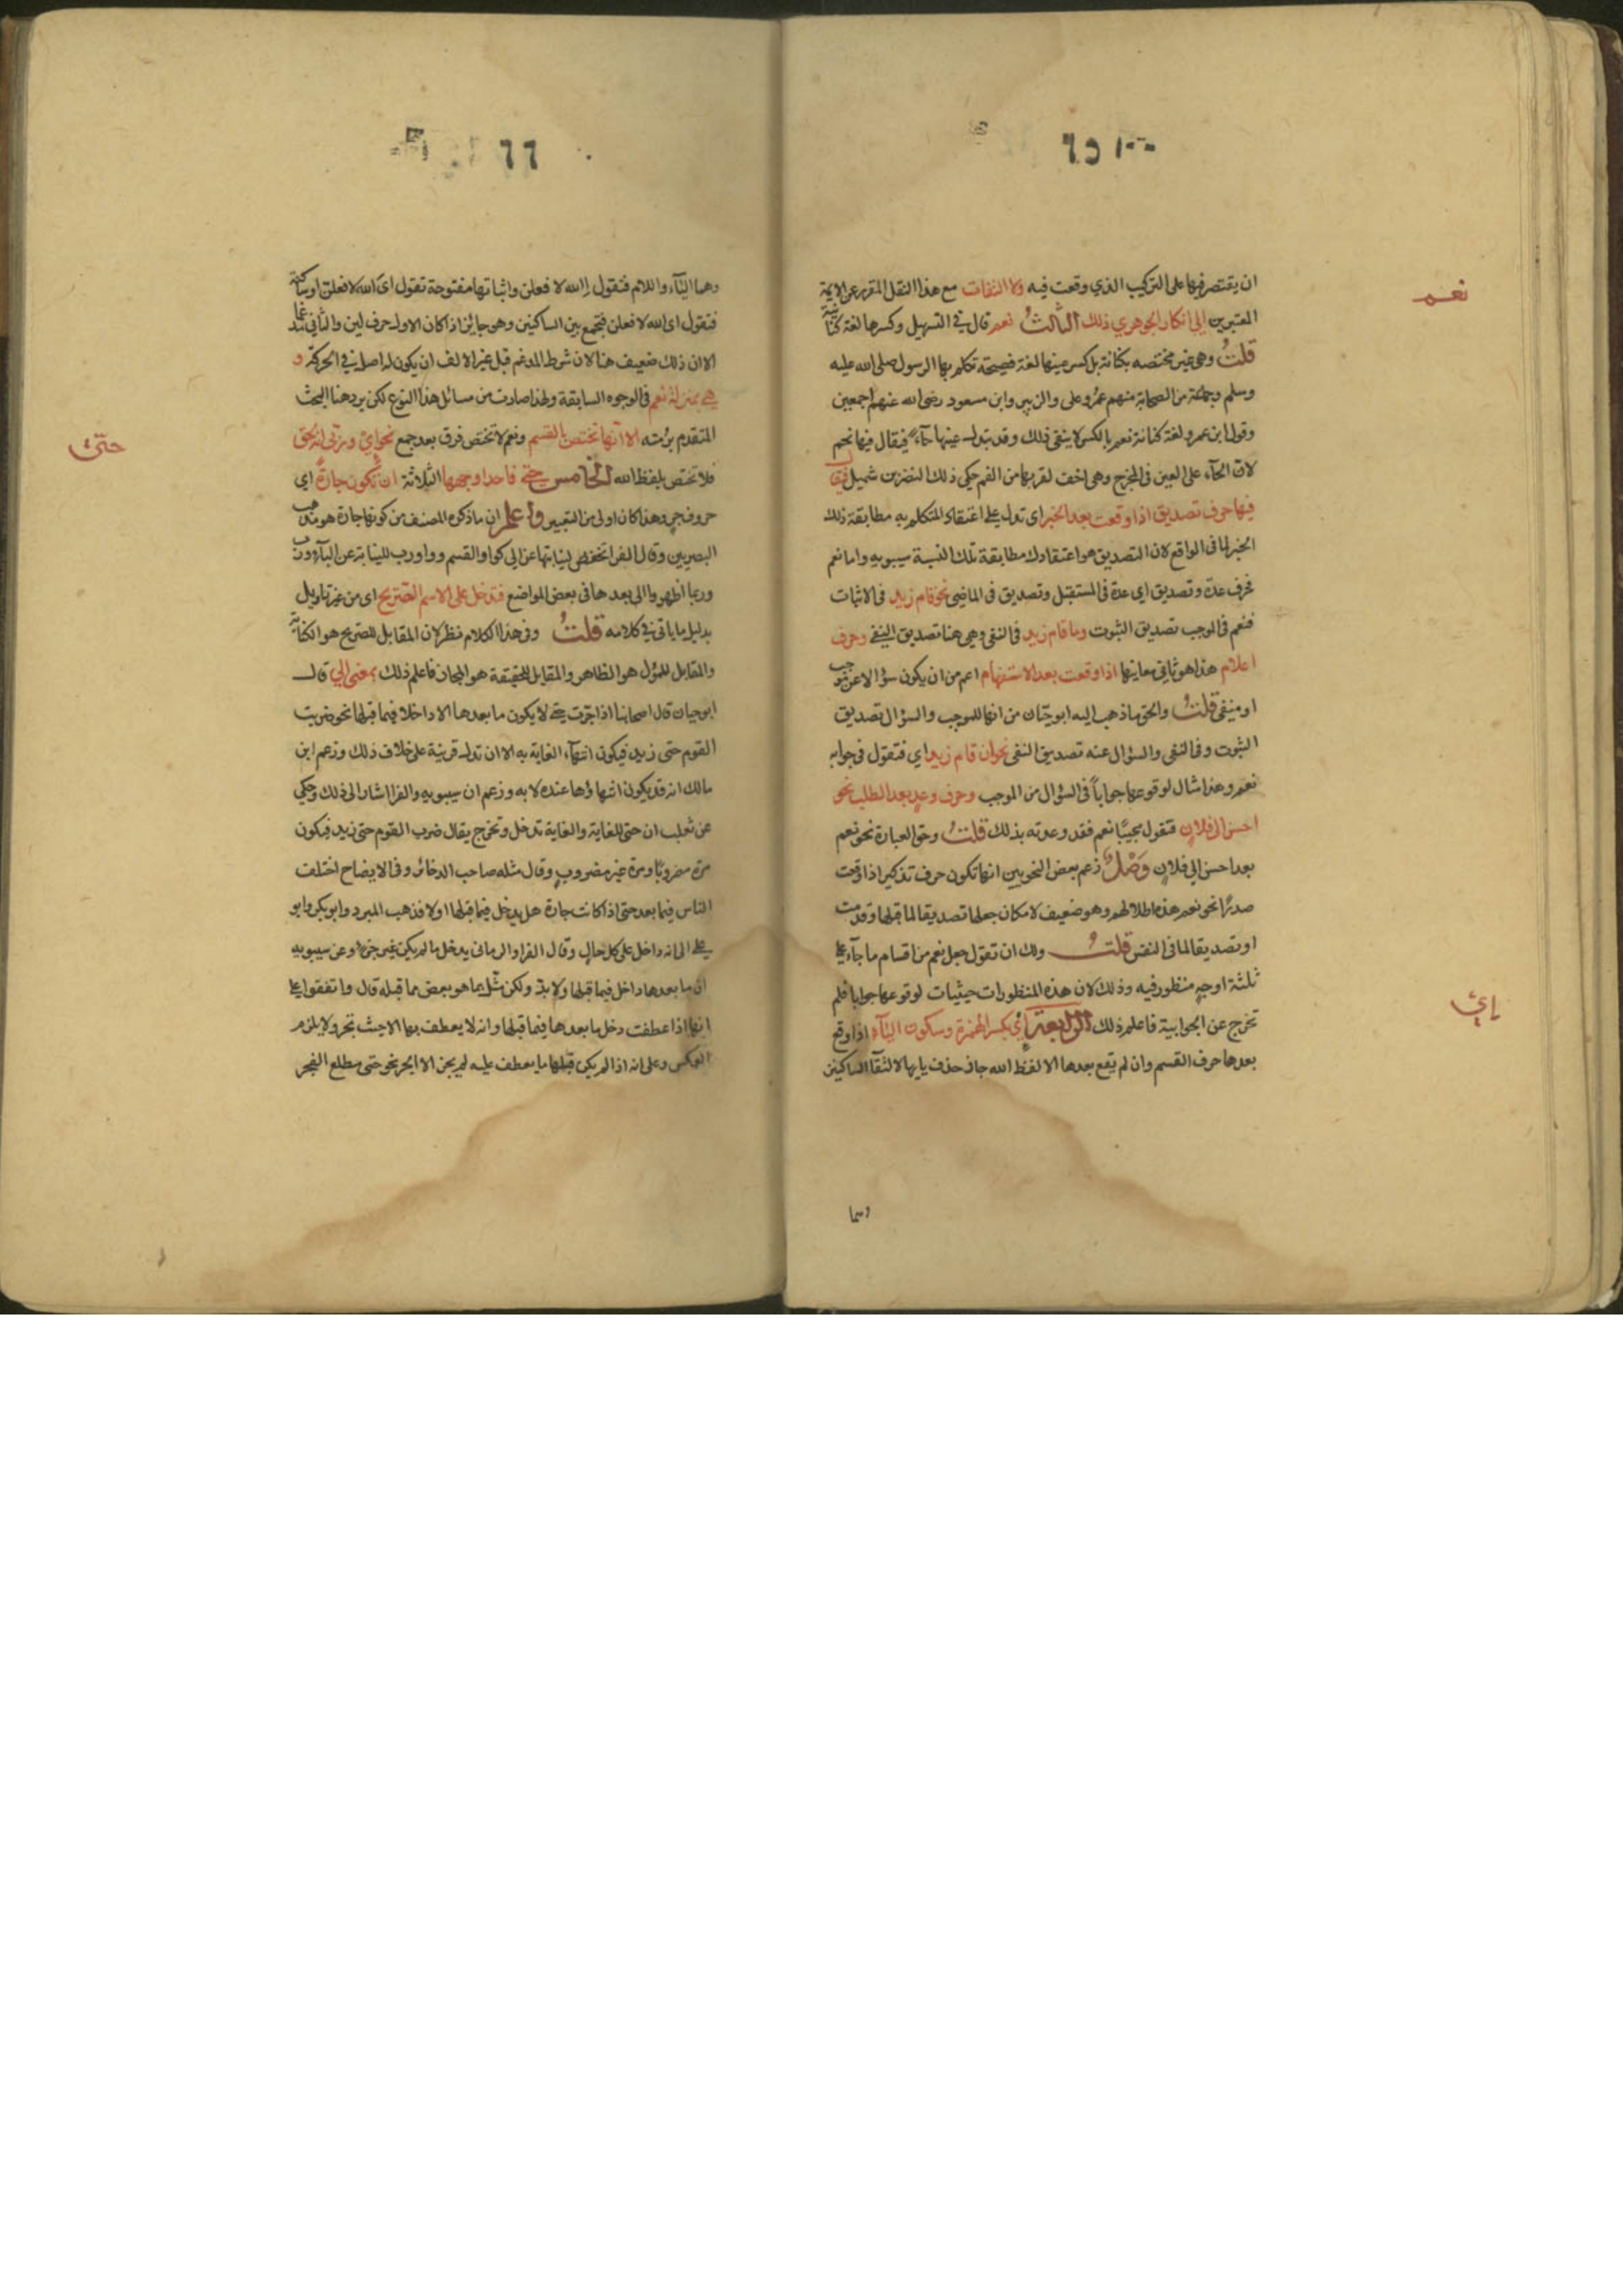 ٦٥
نعم
ان يقتصر فيها على التركيب الذي وقعت فيه ولا التفات مع هذا النقل المقرر عن الايمة
المعتبرين الى انكار الجوهري ذلك الثالث نعم قال في التسهيل وكسرها لغة كنانية
قلت وهي غير مختصه بكنانة بل كسر عينها لغة فصيحة تكلم بها الرسول صلى الله عليه
وسلم وجماعة من الصحابة منهم عمر وعلى والزبير وابن مسعود رضى الله عنهم اجمعين
وقول ابن عمرو لغة كنانة نعم بالكسر لا ينفى ذلك وقد تبدل عينها حاء فيقال فيها نحم
لان الحاء على العين في المخرج وهي اخف لقربها من الفم حكى ذلك النضر بن شميل فيقال
فيها حرف تصديق اذا وقعت بعد الخبر اى تدل على اعتقاد المتكلم به مطابقة ذلك
الخبر لما فى الواقع لان التصديق هو اعتقادك مطابقة تلك النسبة سيبويه واما نعم
فحرف عدة وتصديق اي عدة فى المستقبل وتصديق فى الماضى نحو قام زيد فى الاثبات
فنعم فى الموجب تصديق الثبوت وما قام زيد فى النفى وهي هنا تصديق النفي وحرف
اعلام هذا هو ثاني معانيها اذا وقعت بعد الاستفهام اعم من ان يكون سؤالا عن موجب
او منفى قلت والحق ما ذهب اليه ابو حيان من انها للموجب والسؤال تصديق
الثبوت وفى النفى والسؤال عنه تصديق النفى نحو ان قام زيد اي فتقول فى جوابه
نعم وهذا مثال لوقوعها جواباً فى السؤال من الموجب وحرف وعد بعد الطلب نحو
احسن الى فلان فتقول مجيبًا نعم فقد وعدته بذلك قلت وحق العبارة نحو نعم
بعد احسن الى فلان وصل زعم بعض النحويين انها تكون حرف تذكير اذا وقعت
صدرًا نحو نعم هذه اطلالهم وهو ضعيف لامكان جعلها تصديقا لما قبلها وقدمت
او تصديقا لما فى النفس قلت ولك ان تقول جعل نعم من اقسام ما جآء على
ثلثة اوجه منظور فيه وذلك لان هذه المنظورات حيثيات لوقوعها جوابا فلم
تخرج عن الجوابية فاعلم ذلك الرابعة إي بكسر الهمزة وسكون اليآء اذا وقع
إي
بعدها حرف القسم وان لم يقع بعدها الا لفظ الله جاز حذف يايها لالتقآ الساكنين
وهما
٦٦
وهما اليآء واللام فتقول إ الله لا فعلن واثباتها مفتوحة تقول اى الله لا فعلن او ساكنة
فتقول اى الله لا فعلن فتجمع بين الساكنين وهو جايز اذا كان الاول حرف لين والثانى مدغما
الا ان ذلك ضعيف هنا لان شرط المدغم قبل غير الالف ان يكون له اصل في الحركة و
هي بمنزلة نعم فى الوجوه السابقة ولهذا صارت من مسائل هذا النوع لكن يرد هنا البحث
المتقدم برمته الا انها تختص بالقسم ونعم لا تختص فرق بعد جمع نحو اي وربي انه لحق
حتى
فلا تختص بلفظ الله الخامس حتى فاحد اوجهها الثلاثة ان تكون جارة اي
حروف جر وهذا كان اولى من التعبير واعلم ان ما ذكره المصنف من كونها جارة هو مذهب
البصريين وقال الفرا تخفض لنيابتها عن الى كواو القسم وواو رب للنيابة عن البآء ورب
وربما اظهروا الى بعدها فى بعض المواضع فتدخل على الاسم الصريح اى من غير تاويل
بدليل ما ياتي في كلامه قلت وفى هذا الكلام نظر لان المقابل للصريح هو الكناية
والمقابل للمؤل هو الظاهر والمقابل للحقيقة هو المجاز فاعلم ذلك بمعنى الي قال
ابو حيان قال اصحابنا اذا جرت حتى لا يكون ما بعدها الا داخلا فيما قبلها نحو ضربت
القوم حتى زيد فيكون انتهآء الغاية به الا ان تدل قرينة على خلاف ذلك وزعم ابن
مالك انه قد يكون انتهاؤها عنده لا به وزعم ان سيبويه والفرا اشار الى ذلك وحكي
عن ثعلب ان حتى للغاية والغاية تدخل وتخرج يقال ضرب القوم حتى زيد فيكون
مرة مضروبًا ومرة غير مضروب وقال مثله صاحب الدخائر وفى الايضاح اختلف
الناس فيما بعد حتى اذا كانت جارة هل يدخل فيما قبلها اولا فذهب المبرد وابو بكر وابو
على الى انه داخل على كل حال وقال الفرا والرمانى يدخل ما لم يكن غير جزء وعن سيبويه
ان ما بعدها داخل فيما قبلها ولا بد ولكن مثل بما هو بعض مما قبله قال واتفقوا على
انها اذا عطفت دخل ما بعدها فيما قبلها وانه لا يعطف بها الا حيث تجر ولا يلزم
العكس وعلى انه اذا لم يكن قبلها ما يعطف عليه لم يجز الا الجر نحو حتى مطلع الفجر